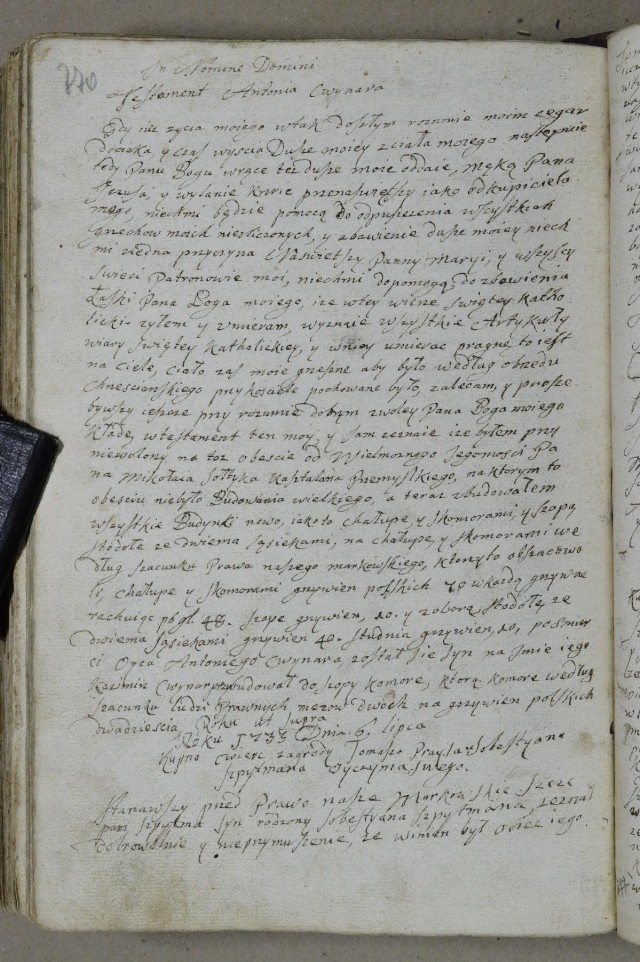 270
In Nomine Domini
Testament Antonia Cwynara
Gdy isz zycia moiego wtak doszłym rozumie moim zegar
docieka y czas wyscia Dusze moiey zciała moiego następuie
tedy Panu Bogu wręce tez dusze moie oddaie, Męką Pana
Jezusa, y wylanie krwie przenaswiętszy iako odkupiciela
mego, niechmi będzie pomocą do odpuszczenia wszystkich
grzechow moich niezliczonych, y zbawienie dusze moiey niech
mi ziedna przyczyna Naswietszy Panny Maryi, y wszyscy
swięci Patronowie moi, niechmi dopomogą do zbawienia
Łaski Pana Boga moiego, isz wtey wierze swiętey Katho
licki zyłem y vmieram, wyznaie wszystkie Artykuły
wiary swiętey Katholickiey, y wniey umierac pragnę to iest
na ciele, ciało zas moie grzeszne aby było według obrzędu
Chrzescianskiego przykosciele pochowane było, zalecam, y prosze
bywszy ieszcze przy rozumie dobrym zwoley Pana Boga moiego
Kładę wtestament ten moy, y sam zeznaie isz byłem przy
niewolony na toz obescie od Wielmoznego Jegomosci Pa
na Mikołaia Sołtyka Kasztelana Przemyskiego, naktorym to
obesciu niebyło Budowania wielkiego, a teraz zbudowałem
wszystkie Budynki nowo, iakoto chałupe, y skomorami, y szopą
stodołe ze dwiema sąsiekami, na chałupe, y skomorami we
dług szacunku Prawa naszego markowskiego, ktorzyto obszacowa
li, chałupe y skomorami grzywien polskich 70 wkazdą grzywnę
rachuiąc po gl. 48. szope grzywien, 20. y zoborą, stodołę ze
dwiema sąsiekami grzywien 40. studnia grzywien, 10, posmier
ci Oyca Antoniego Cwynara, został sie syn na imie iego
Kazimirz Cwynar przybudował do szopy komore, ktorą komore według
szacunku ludzi Prawnych na grzywien polskich
dwadziescia, Roku ut supra
Roku 1733 Dnia 6 lipca
Kupno cwierc zagrody Tomasza Sobestyana
Szpytmana
Stanawszy przed Prawo nasze Markowskie
Szpytma syn rodzony Sobestyana Szpytmana, zeznał
dobrowolnie y nieprzymuszenie, ze winien był ociec iego